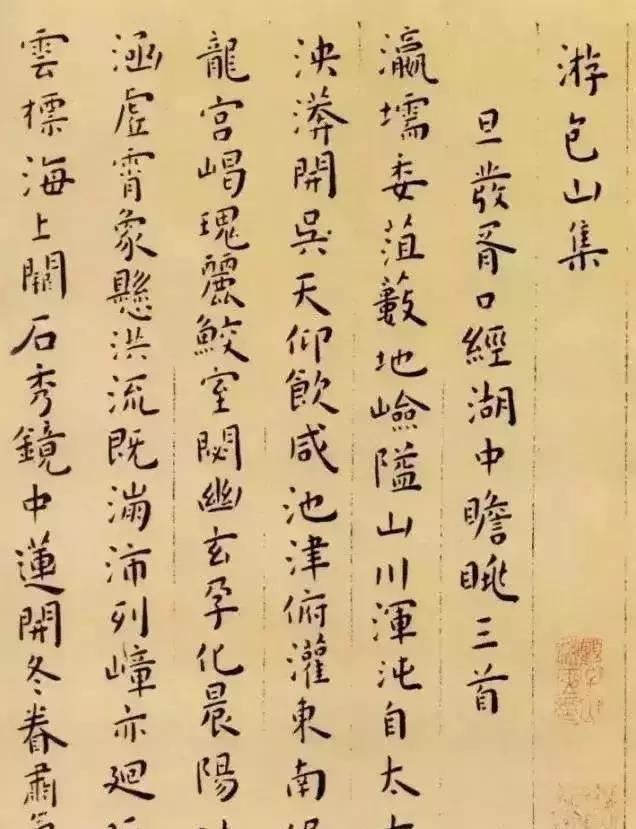 游包山集
旦發胥口經湖中瞻眺三首
瀛壖委菹藪地嶮隘山川渾沌自太
泱漭開吳天仰飲咸池津俯灌東南
龍宮嵑瑰麗鮫室閟幽玄孕化晨陽
涵虛霄象懸洪流既滿沛列嶂亦廻
雲標海上闕石秀鏡中蓮開冬眷肅